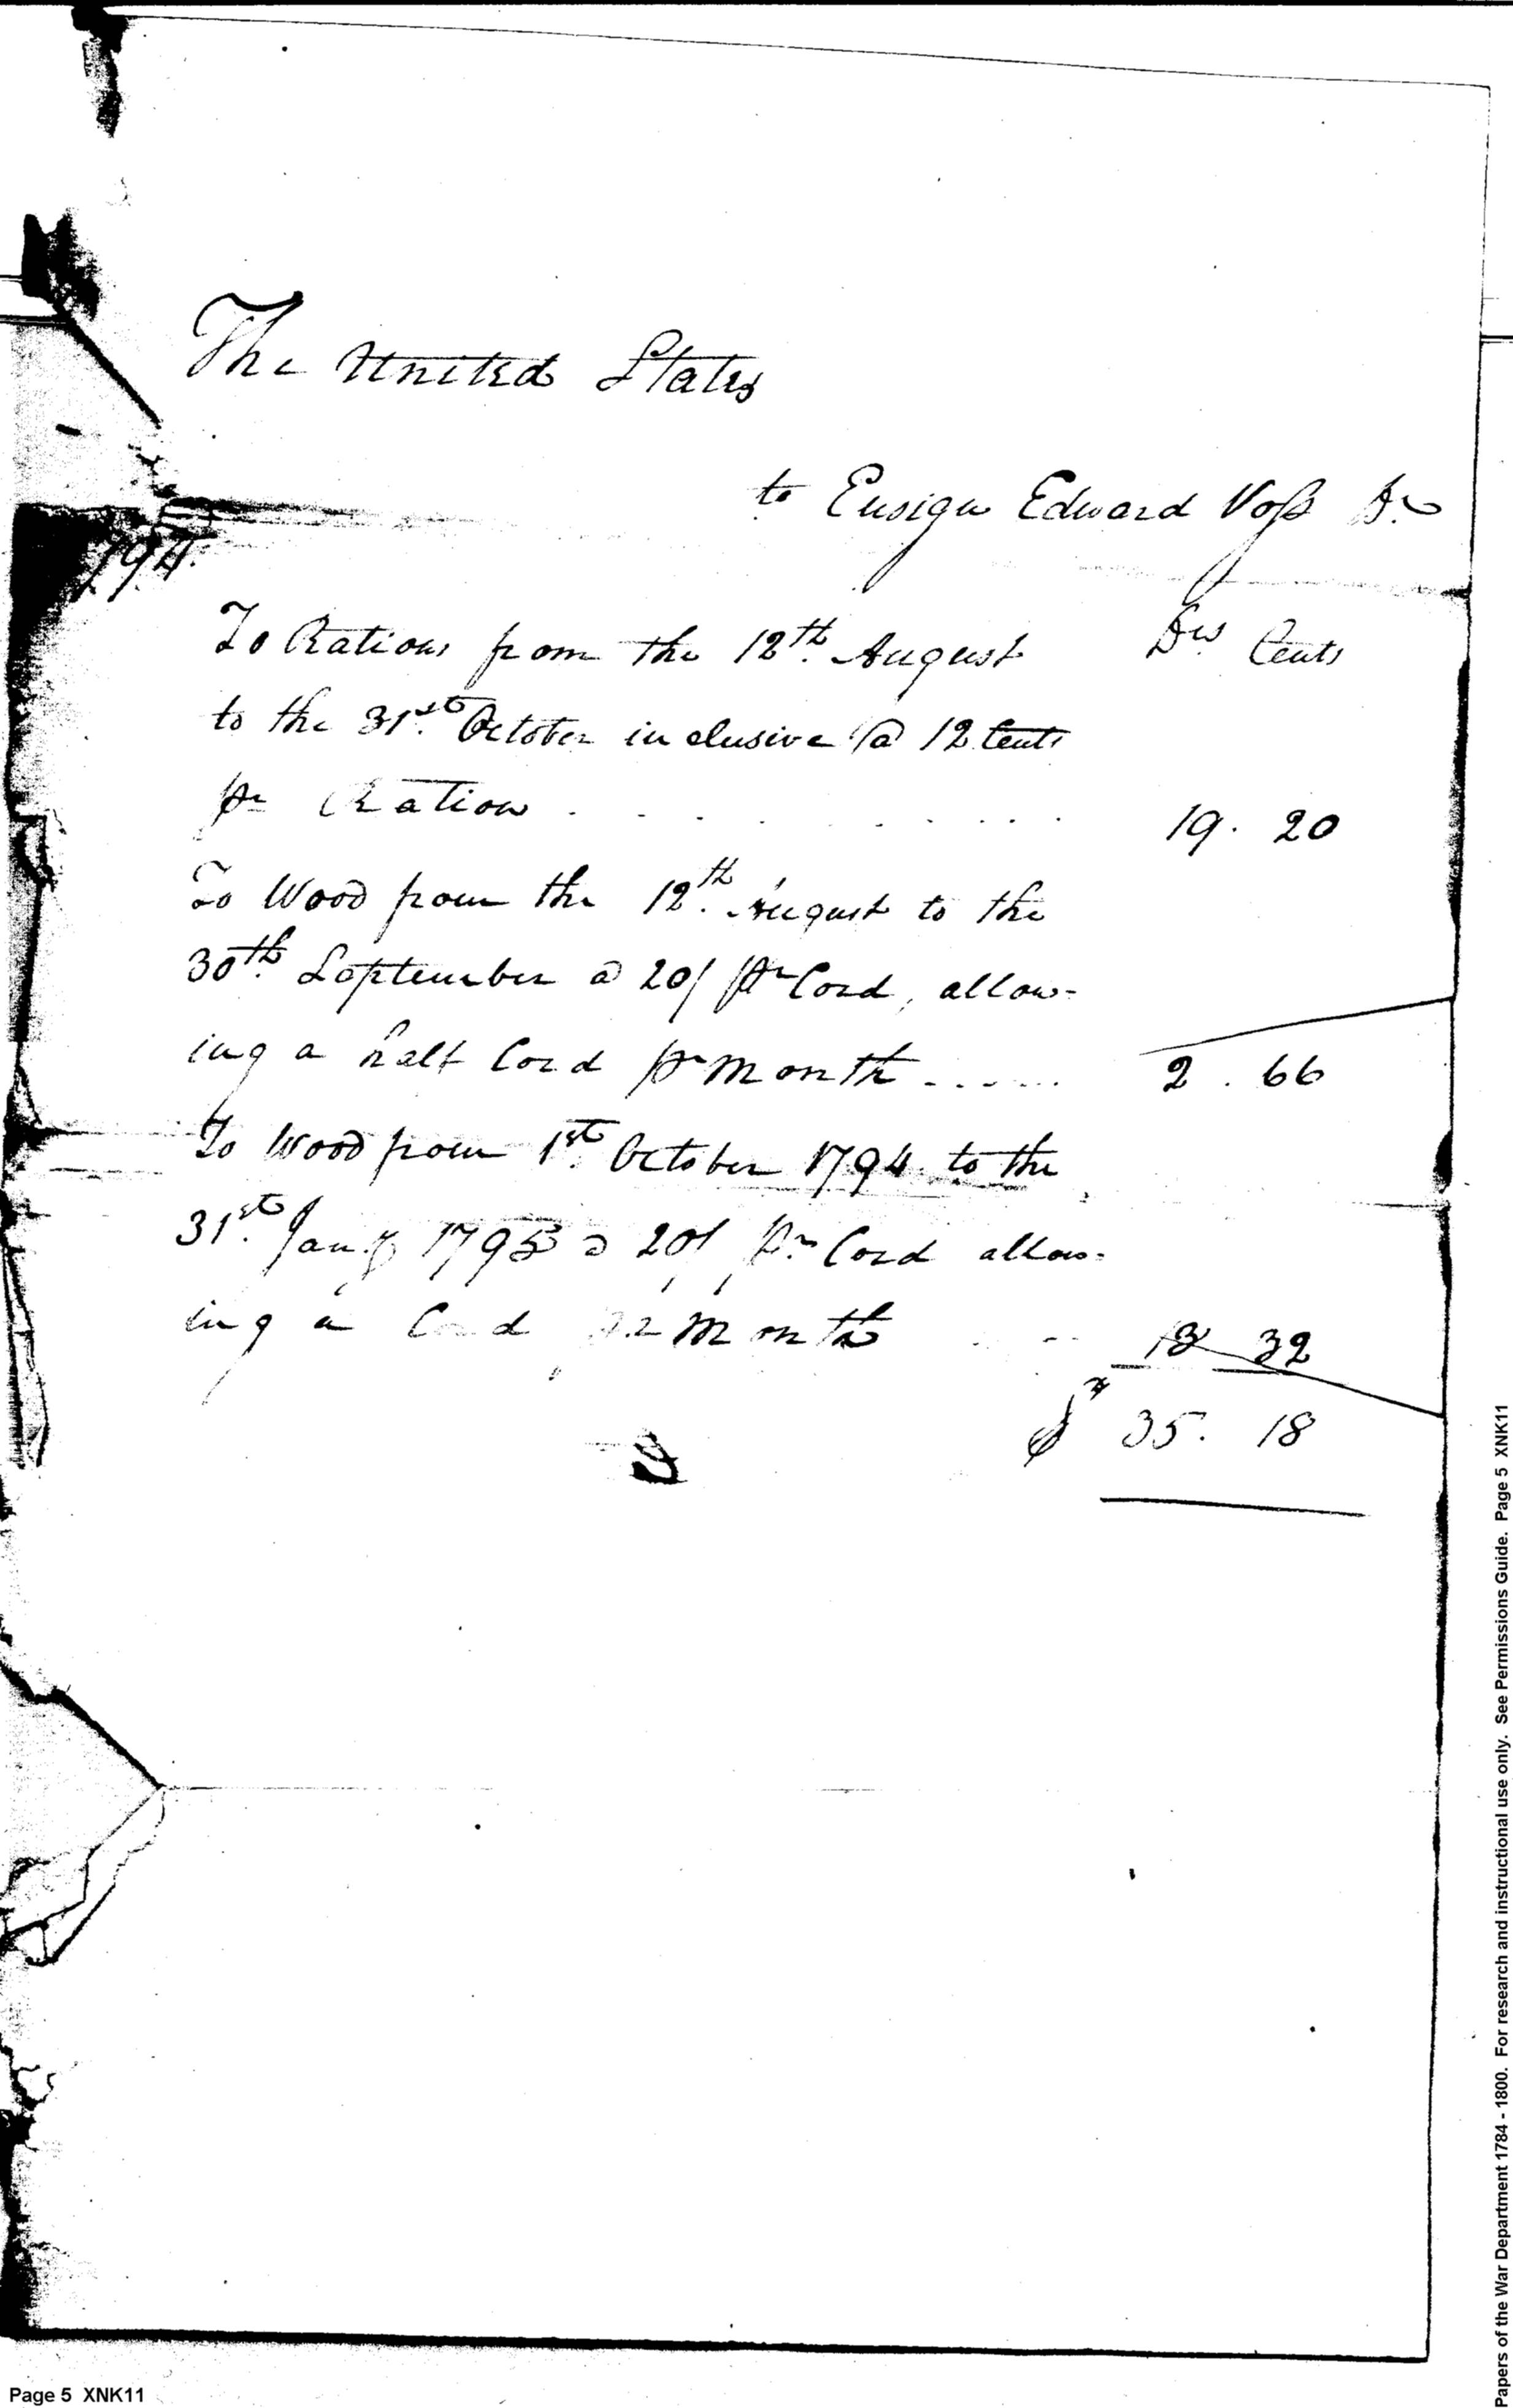 The United States
to Ensign Edward Voss Dr
1794.
To Rations from the 12th. August Drs Cents
to the 31st. October inclusive @ 12 Cents
pr Ration . . . . . . . . . . 19. 20
To Wood from the 12th. August to the
30th. September @ 20/ pr Cord, allow-
ing a half Cord pr month ..... 2 . 66
To Wood from 1st. October 1794. to the
31st. Jany 1795 @ 20/ pr Cord allow-
ing a Cord pr Month 13 32
$ 35. 18
Page 5 XNK11
Papers of the War Department 1784 - 1800. For research and instructional use only. See Permissions Guide. Page 5 XNK11